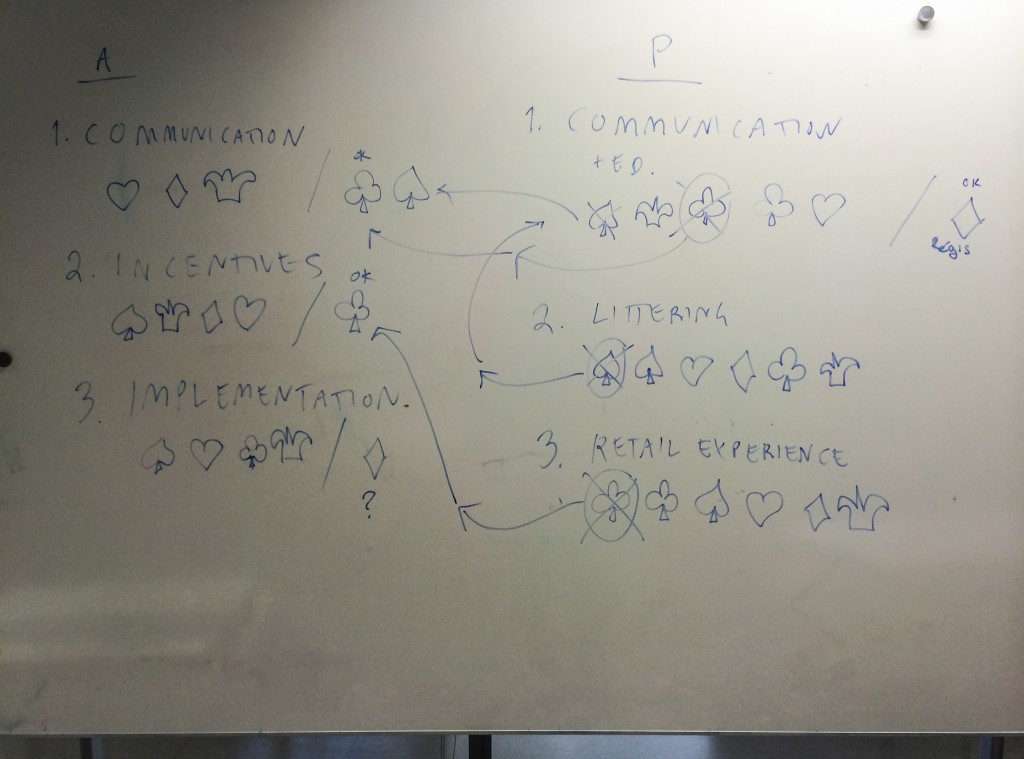 A
1. COMMUNICATION
*
2. INCENTIVES
OK
3. IMPLEMENTATION.
?
P
1. COMMUNICATION
+ ED.
OK
Régis
2. LITTERING
3. RETAIL EXPERIENCE